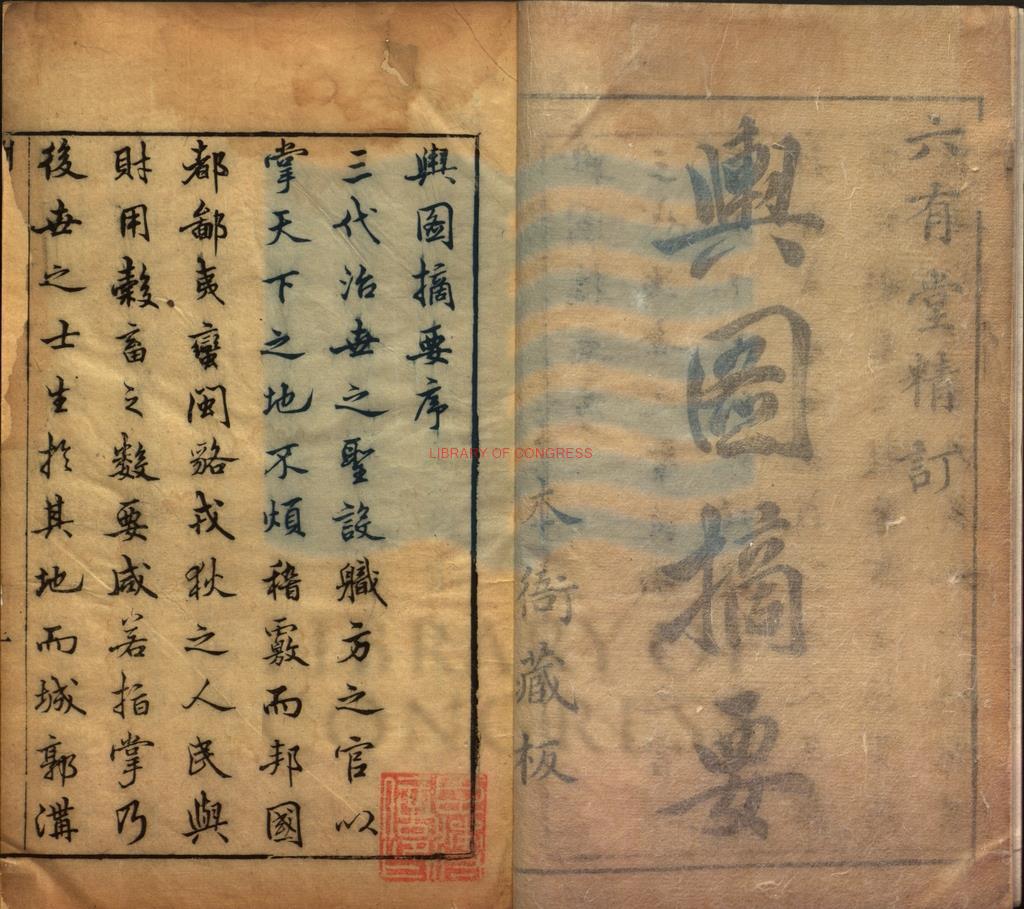 六有堂精訂
輿圖摘要
本衙藏板
輿圖摘要序
三代治世之聖設職方之官以
掌天下之地不煩稽覈而邦國
都鄙夷蠻閩貉戎狄之人民與
財用穀畜之數要咸若指掌乃
後世之士生於其地而城郭溝
LIBRARY OF CONGRESS